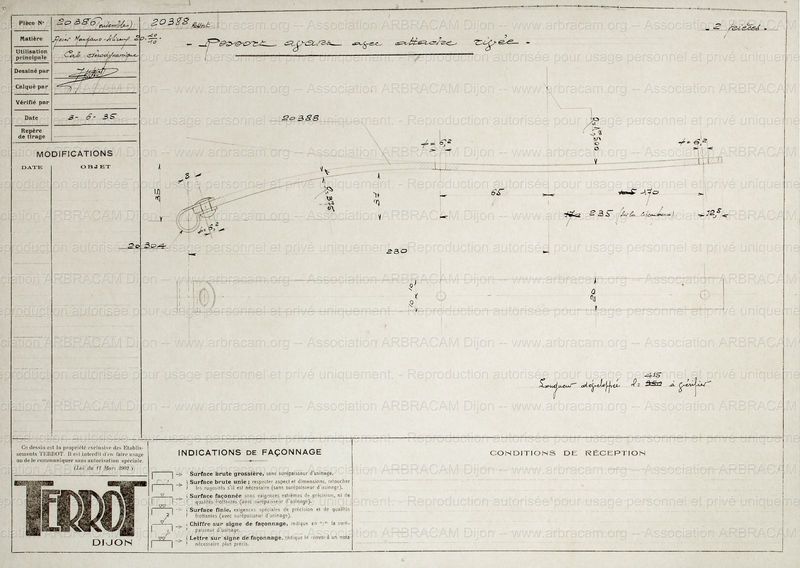 Pièce N° 20386 (ensemble) 20388 Ressort
Matière 
Utilisation principale
Dessiné par
Calqué par
Vérifié par
Date 3-6-35
Repère de tirage
MODIFICATIONS
DATE OBJET
- Ressort arrière avec attache rivée. -
- 2 pièces. -
20388
t = 6,2
t = 6,2
35
R. 375
65
170
235
12,5
20304
230
20
Longueur développée l = 415 à vérifier
Ce dessin est la propriété exclusive des Etablis-
sements TERROT. Il est interdit d'en faire usage
ou de le communiquer sans autorisation spéciale.
(Loi du 11 Mars 1902.)
TERROT
DIJON
INDICATIONS DE FAÇONNAGE
Surface brute grossière, sans surépaisseur d'usinage.
Surface brute unie; respecter aspect et dimensions, retoucher
les rugosités s'il est nécessaire (sans surépaisseur d'usinage).
Surface façonnée sans exigences extrêmes de précision, ni de
qualités frottantes (avec surépaisseur d'usinage).
Surface finie, exigences spéciales de précision et de qualités
frottantes (avec surépaisseur d'usinage).
Chiffre sur signe de façonnage, indique en m/m la suré-
paisseur d'usinage.
Lettre sur signe de façonnage, indique le renvoi à un nota
nécessaire plus précis.
CONDITIONS DE RÉCEPTION
Association ARBRACAM Dijon -- www.arbracam.org -- Association ARBRACAM Dijon -- www.arbracam.org
Reproduction autorisée pour usage personnel et privé uniquement.